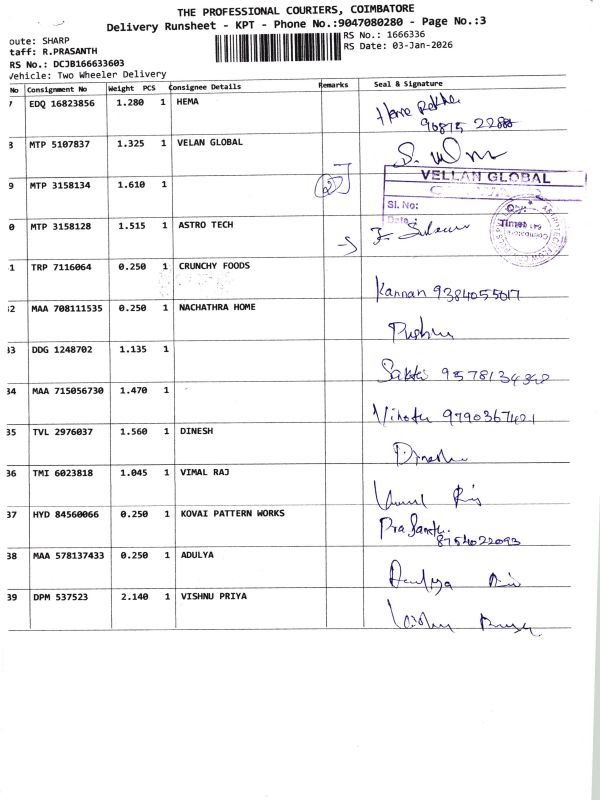 THE PROFESSIONAL COURIERS, COIMBATORE
Delivery Runsheet - KPT - Phone No.:9047080280 - Page No.:3
oute: SHARP
RS No.: 1666336
taff: R.PRASANTH
RS Date: 03-Jan-2026
RS No.: DCJB166633603
Vehicle: Two Wheeler Delivery
No Consignment No Weight PCS Consignee Details Remarks Seal & Signature
7 EDQ 16823856 1.280 1 HEMA
8 MTP 5107837 1.325 1 VELAN GLOBAL
VELLAN GLOBAL
9 MTP 3158134 1.610 1
Sl. No:
Date:
Time:
0 MTP 3158128 1.515 1 ASTRO TECH
Coimbatore
1 TRP 7116064 0.250 1 CRUNCHY FOODS
Kannan 9384055017
2 MAA 708111535 0.250 1 NACHATHRA HOME
33 DDG 1248702 1.135 1
Sakthi
34 MAA 715056730 1.470 1
9790367421
35 TVL 2976037 1.560 1 DINESH
36 TMI 6023818 1.045 1 VIMAL RAJ
37 HYD 84560066 0.250 1 KOVAI PATTERN WORKS
8754022093
38 MAA 578137433 0.250 1 ADULYA
39 DPM 537523 2.140 1 VISHNU PRIYA